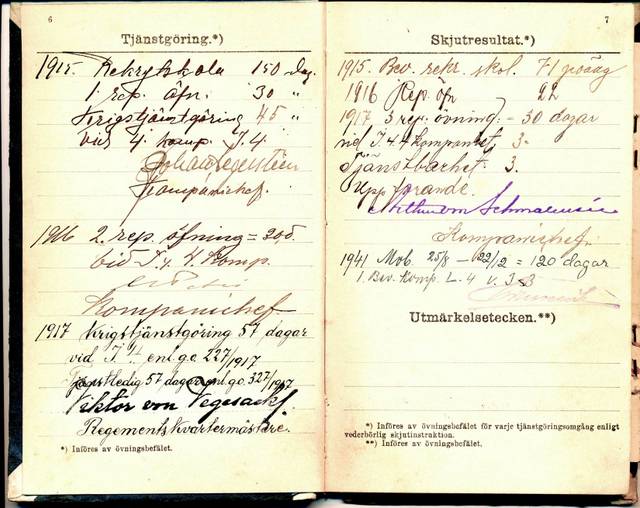 6
Tjänstgöring.*)
1915. Rekrytskola 150 dag.
1 rep. öfn. 30 "
Krigstjänstgöring 45 "
vid 4. komp. I. 4.
Kompanichef.
1916 2. rep. öfning = 30 d.
vid I. 4. 4. Komp.
Kompanichef
1917 Krigstjänstgöring 57 dagar
vid I. 4. enl. g.o. 227/1917
Tjänstledig 57 dagar enl. g.o. 327/1917
Viktor von Vegesack.
Regementskvartermästare.
*) Införes av övningsbefälet.
7
Skjutresultat.*)
1915. Bev. rekr. skol. 71 poäng
1916 Rep. öfn 22
1917 3 rep. övning = 30 dagar
vid I 4 4 kompaniet 3.
Tjänstbarhet 3.
Uppförande.
Kompanichef.
1941 Mob. 25/8 — 22/12 = 120 dagar
1. Bev. Komp. L. 4 v. 3 3
Utmärkelsetecken.**)
*) Införes av övningsbefälet för varje tjänstgöringsomgång enligt
vederbörlig skjutinstruktion.
**) Införes av övningsbefälet.